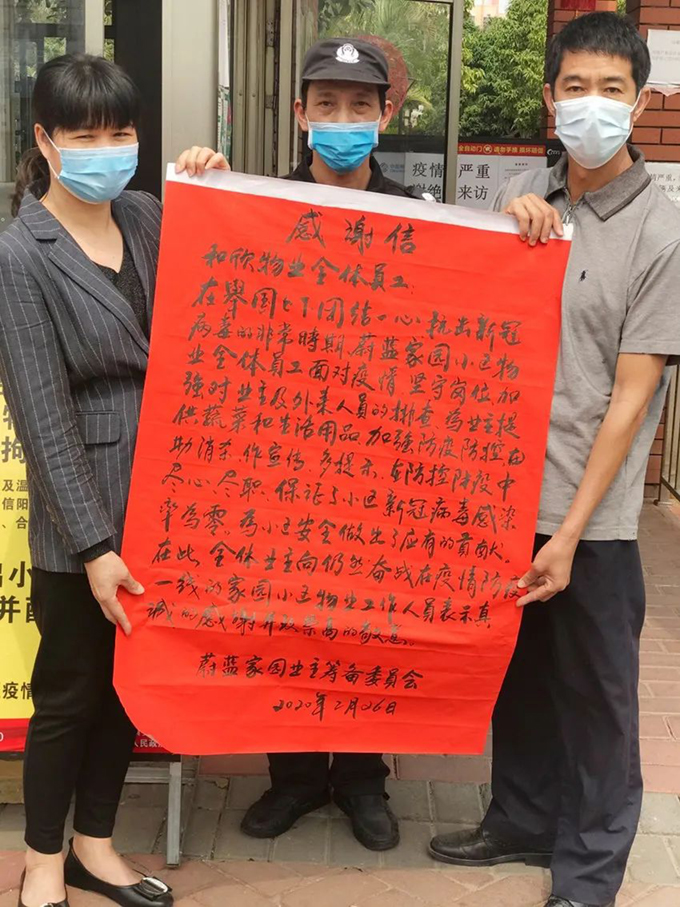 感谢信
和欣物业全体员工：
在举国上下团结一心抗击新冠
病毒的非常時期，蔚蓝家园小区物
业全体员工面对疫情坚守岗位加
强对业主及外来人员的排查，为业主提
供蔬菜和生活用品，加强防疫防控
助消杀，作宣传，多提示，在防控阶段中
尽心、尽职，保证了小区新冠病毒感染
率为零，为小区安全做出了应有的贡献。
在此，全体业主向仍然奋战在疫情防疫
一线的家园小区物业工作人员表示真
诚的感谢并致崇高的敬意。
蔚蓝家园业主筹备委员会
2020年2月26日
疫情严重
谢绝来访
全自动门
请勿手推
损坏赔偿
拘
及温
信阳
、合
出小
并配
疫情
人民政